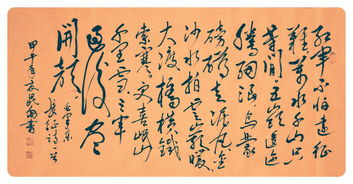 红军不怕远征
难万水千山只
等闲五岭逶迤
腾细浪乌蒙
磅礴走泥丸金
沙水拍云崖暖
大渡桥横铁
索寒更喜岷山
千里雪三军
过后尽
开颜
毛泽东
长征诗一首
甲午年夏
书